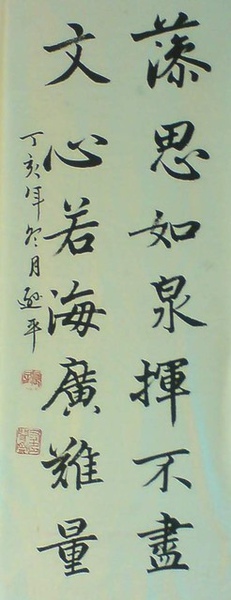 藻思如泉揮不盡
文心若海廣難量
丁亥年冬月逊平